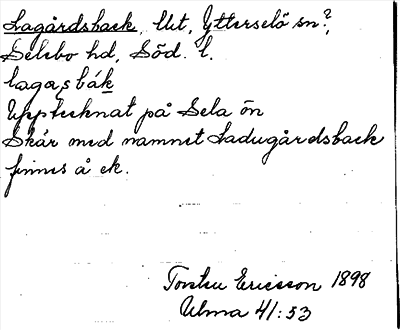 Lagårdsback, Ut, Ytterselö sn?,
Selebo hd, Söd. l.
lagaşbák
Upptecknat på Sela ön
Skär med namnet Ladugårdsback
finnes å ek.
Torsten Ericsson 1898
Ulma 41:53